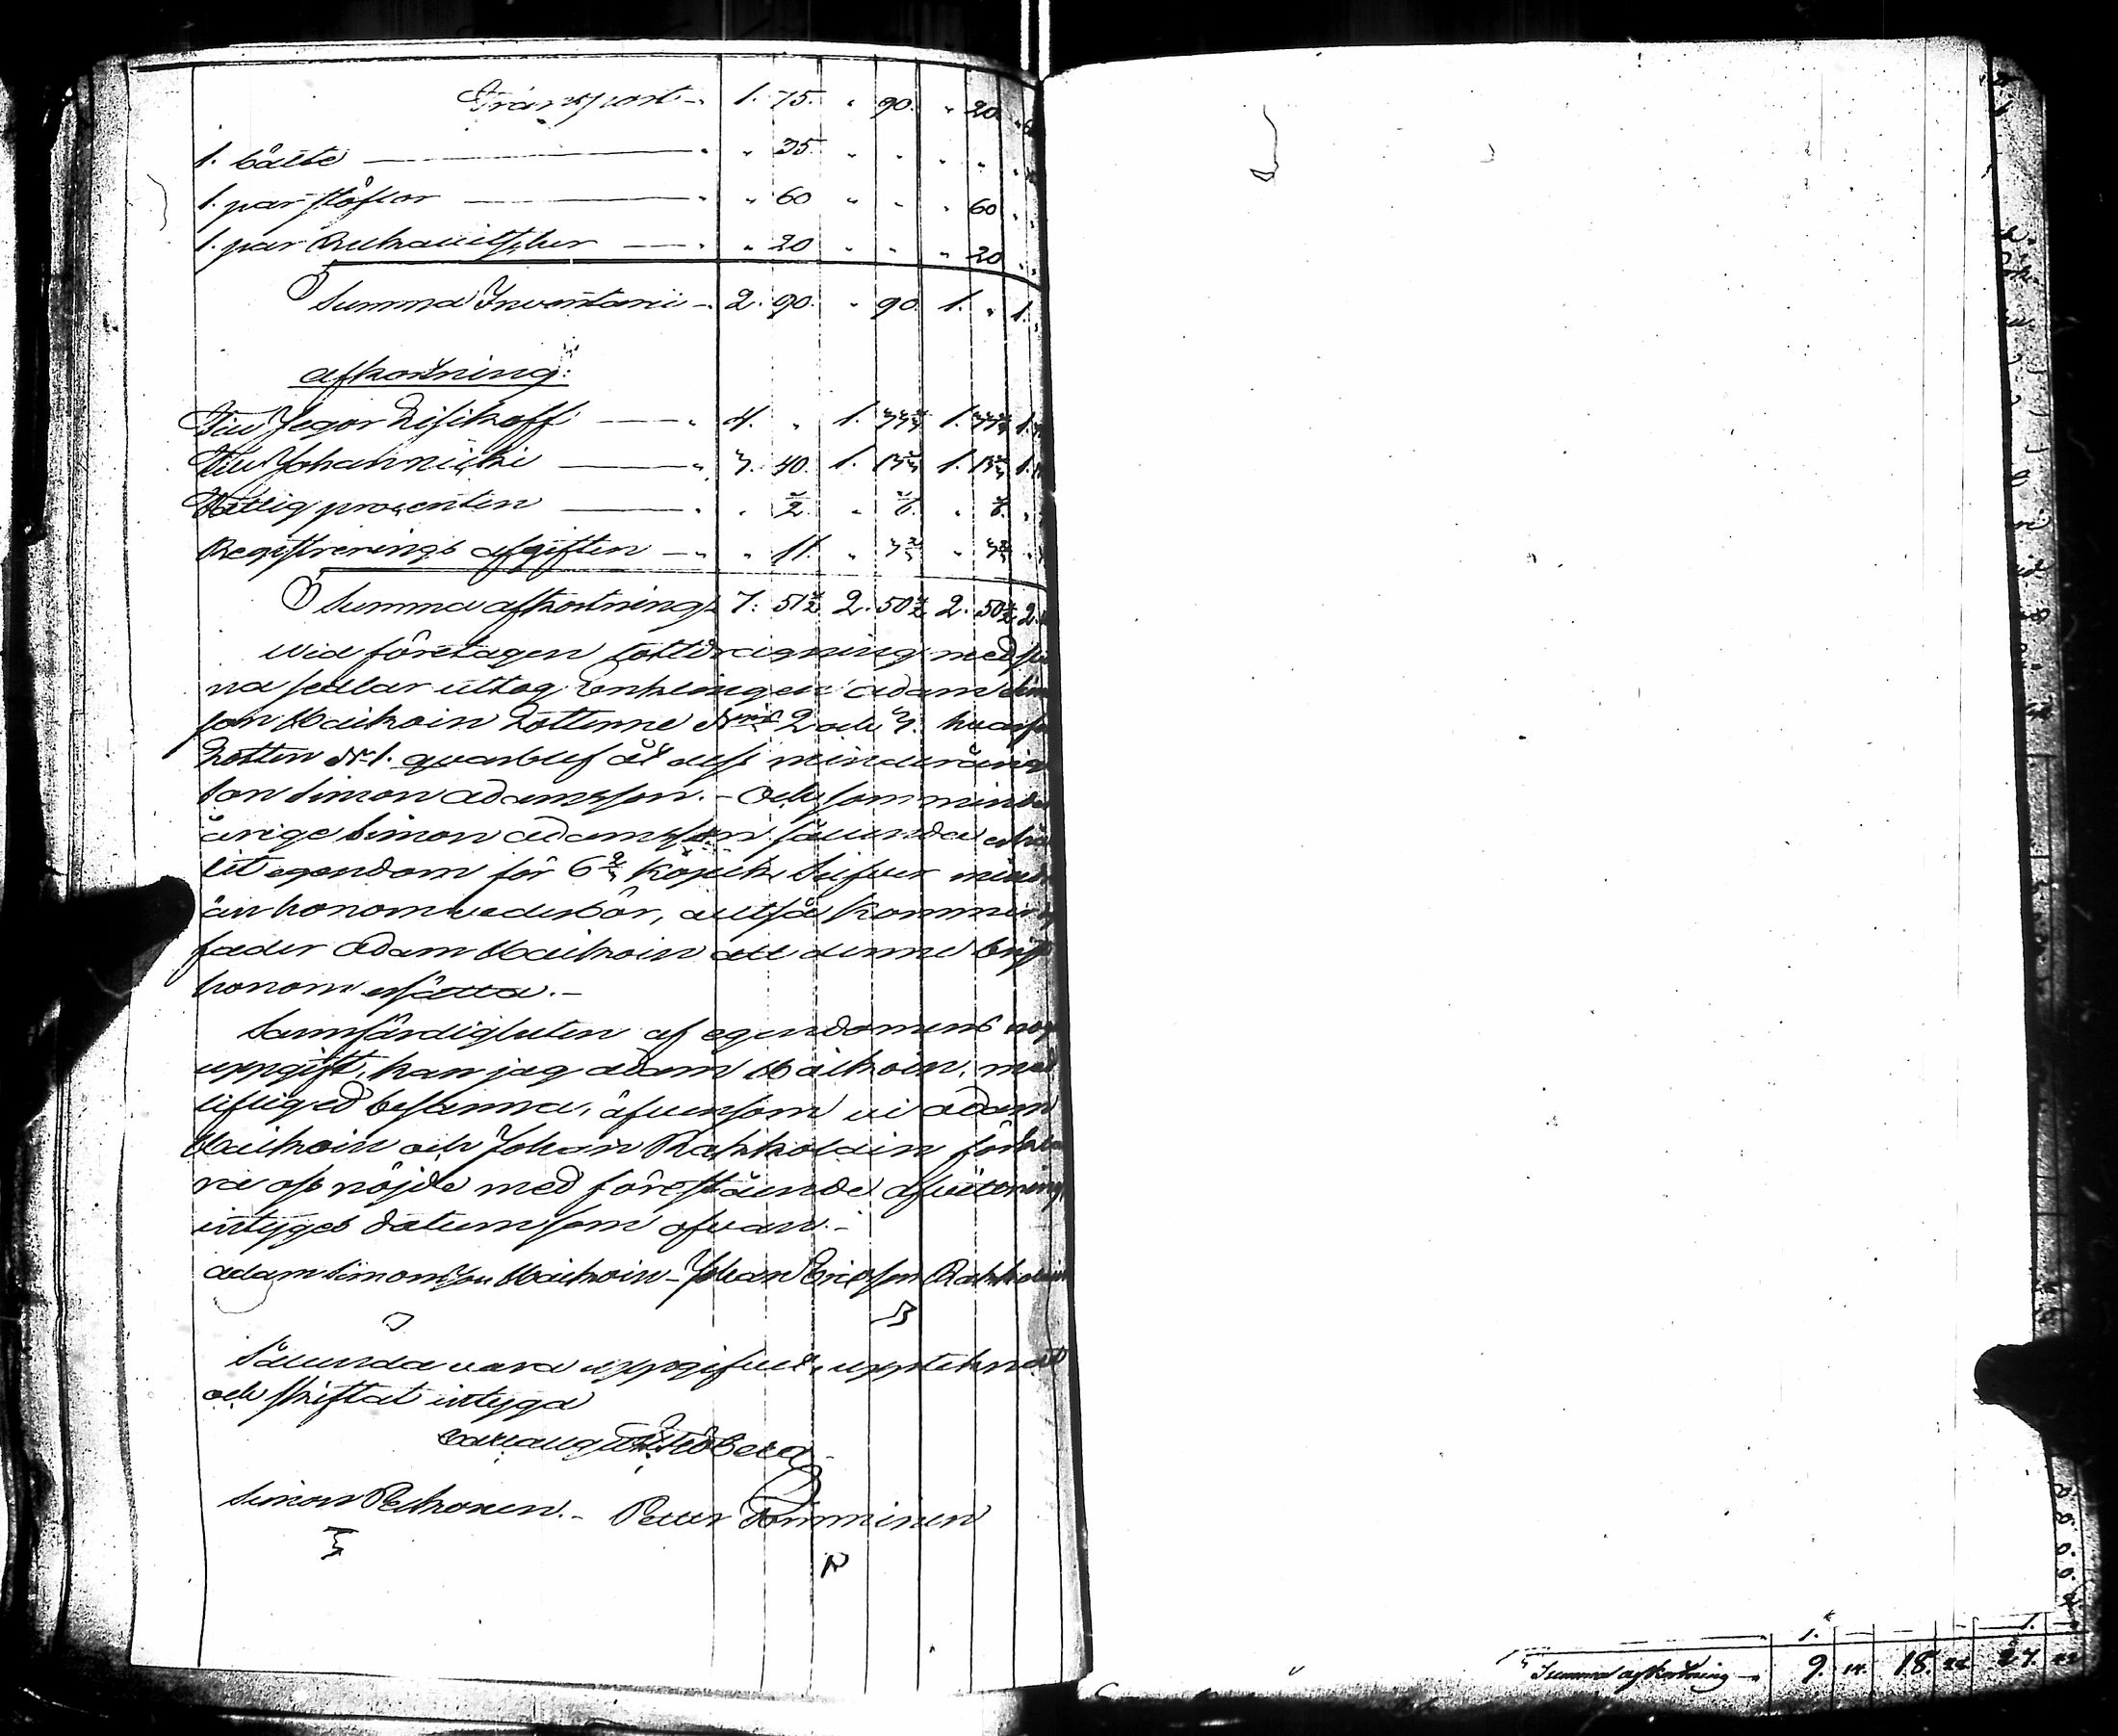 Transport 1. 75. " 90. " 20.
1. bälte " 35. " " " "
1. par stöflor " 60 " " " 60
1. par Bukauitskor " 20 " " " 20
Summa Inventarii 2. 90. " 90. 1. " 1.
afkortning:
Till Jegor Lisikoff 4. " 1. 33 1/3 1. 33 1/3 1.
Till Johannicki 3. 40. 1. 13 1/3 1. 13 1/3 1.
Fattig procenten " 1/2 " 1/6 " 1/6
Registrerings afgiften " 11. " 3 2/3 " 3 2/3
Summa afkortning 7. 51 1/2 2. 50 1/2 2. 50 1/2 2.
Wid företagen lottdragning med
na sedlar uttog Enklingen Adam Sim
son Waikoin Lotterne Nris 2 och 3. hvarf
Lotten No 1. quarblef åt dess minderårig
son Simon Adamsson. - Och som minder
årige Simon Adamsson sålunda erhål
lit egendom för 6 2/3 kopek Silfver mindre
än honom vederbör, alltså kommer
fader Adam Waikoin att denne brist
honom ersätta. -
Sannfärdigheten af egendomens
uppgift, kan jag Adam Waikoin, med
liflig ed besanna, äfvensom vi Adam
Waikoin och Johan Rahkolain förkla
ra oss nöjde med förestående afvittring
intyges datum som ofvan. -
Adam Simonsson Waikoin - Johan Ericsson Rahkolain
Sålunda vara uppgifvet, upptecknat
och skiftat intyga
Carl Aug
Simon Pelkonen. - Petter Tömminen
1. 1.
Summa afkortning 9. 14. 18. 22 27. 22